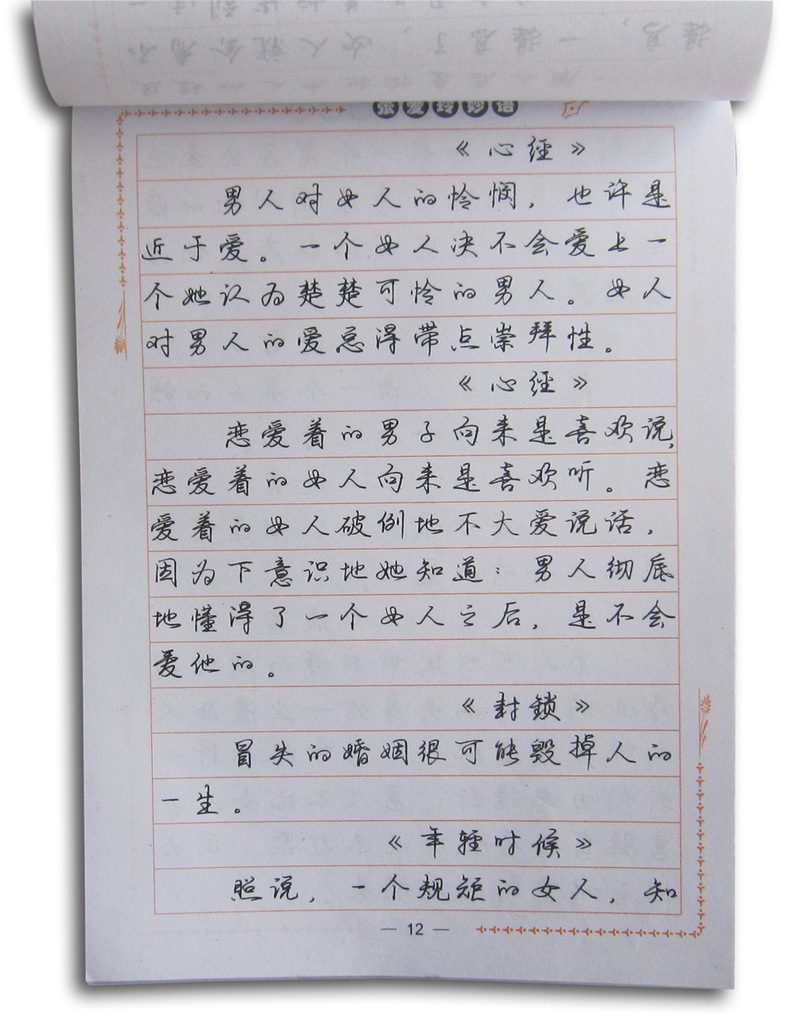 张爱玲妙语
《心经》
男人对女人的怜悯，也许是
近于爱。一个女人决不会爱上一
个她认为楚楚可怜的男人。女人
对男人的爱总得带点崇拜性。
《心经》
恋爱着的男子向来是喜欢说，
恋爱着的女人向来是喜欢听。恋
爱着的女人破例地不大爱说话，
因为下意识地她知道：男人彻底
地懂得了一个女人之后，是不会
爱他的。
《封锁》
冒失的婚姻很可能毁掉人的
一生。
《年轻时候》
照说，一个规矩的女人，知
— 12 —